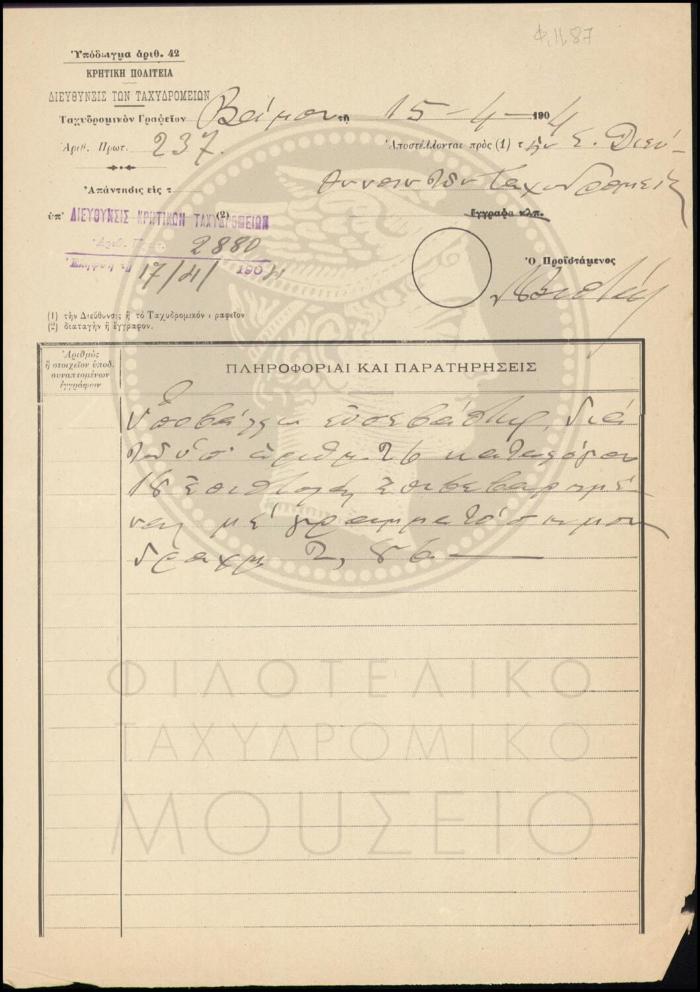 Φ.11.87
Ὑπόδειγμα ἀριθ. 42
ΚΡΗΤΙΚΗ ΠΟΛΙΤΕΙΑ
ΔΙΕΥΘΥΝΣΙΣ ΤΩΝ ΤΑΧΥΔΡΟΜΕΙΩΝ
Ταχυδρομικὸν Γραφεῖον Βάμου τῇ 15-4-1904
Ἀριθ. Πρωτ. 237. Ἀποστέλλονται πρὸς (1) τὴν Σ. Διεύ-
θυνσιν τῶν Ταχυδρομείων
Ἀπάντησις εἰς τ
ἔγγραφα κλπ.
ὑπ' (2)
ΔΙΕΥΘΥΝΣΙΣ ΚΡΗΤΙΚΩΝ ΤΑΧΥΔΡΟΜΕΙΩΝ
Ἀριθ. Πρωτ. 2880
17/4/1904
Ὁ Προϊστάμενος
(1) τὴν Διεύθυνσις ἢ τὸ Ταχυδρομικὸν Γραφεῖον
(2) διαταγὴν ἢ ἔγγραφον.
Ἀριθμὸς
ἢ στοιχεῖον ὑποδ.
συναπτομένων
ἐγγράφων
ΠΛΗΡΟΦΟΡΙΑΙ ΚΑΙ ΠΑΡΑΤΗΡΗΣΕΙΣ
Ὑποβάλλω εὐσεβάστως διὰ
τοῦ ὑπ' ἀριθμ. 26 καταλόγου
18 ἐπιστολὰς ἐπιβεβαρημέ-
νας μὲ γραμματόσημον
δραχμ. 2,86
ΦΙΛΟΤΕΛΙΚΟ
ΤΑΧΥΔΡΟΜΙΚΟ
ΜΟΥΣΕΙΟ